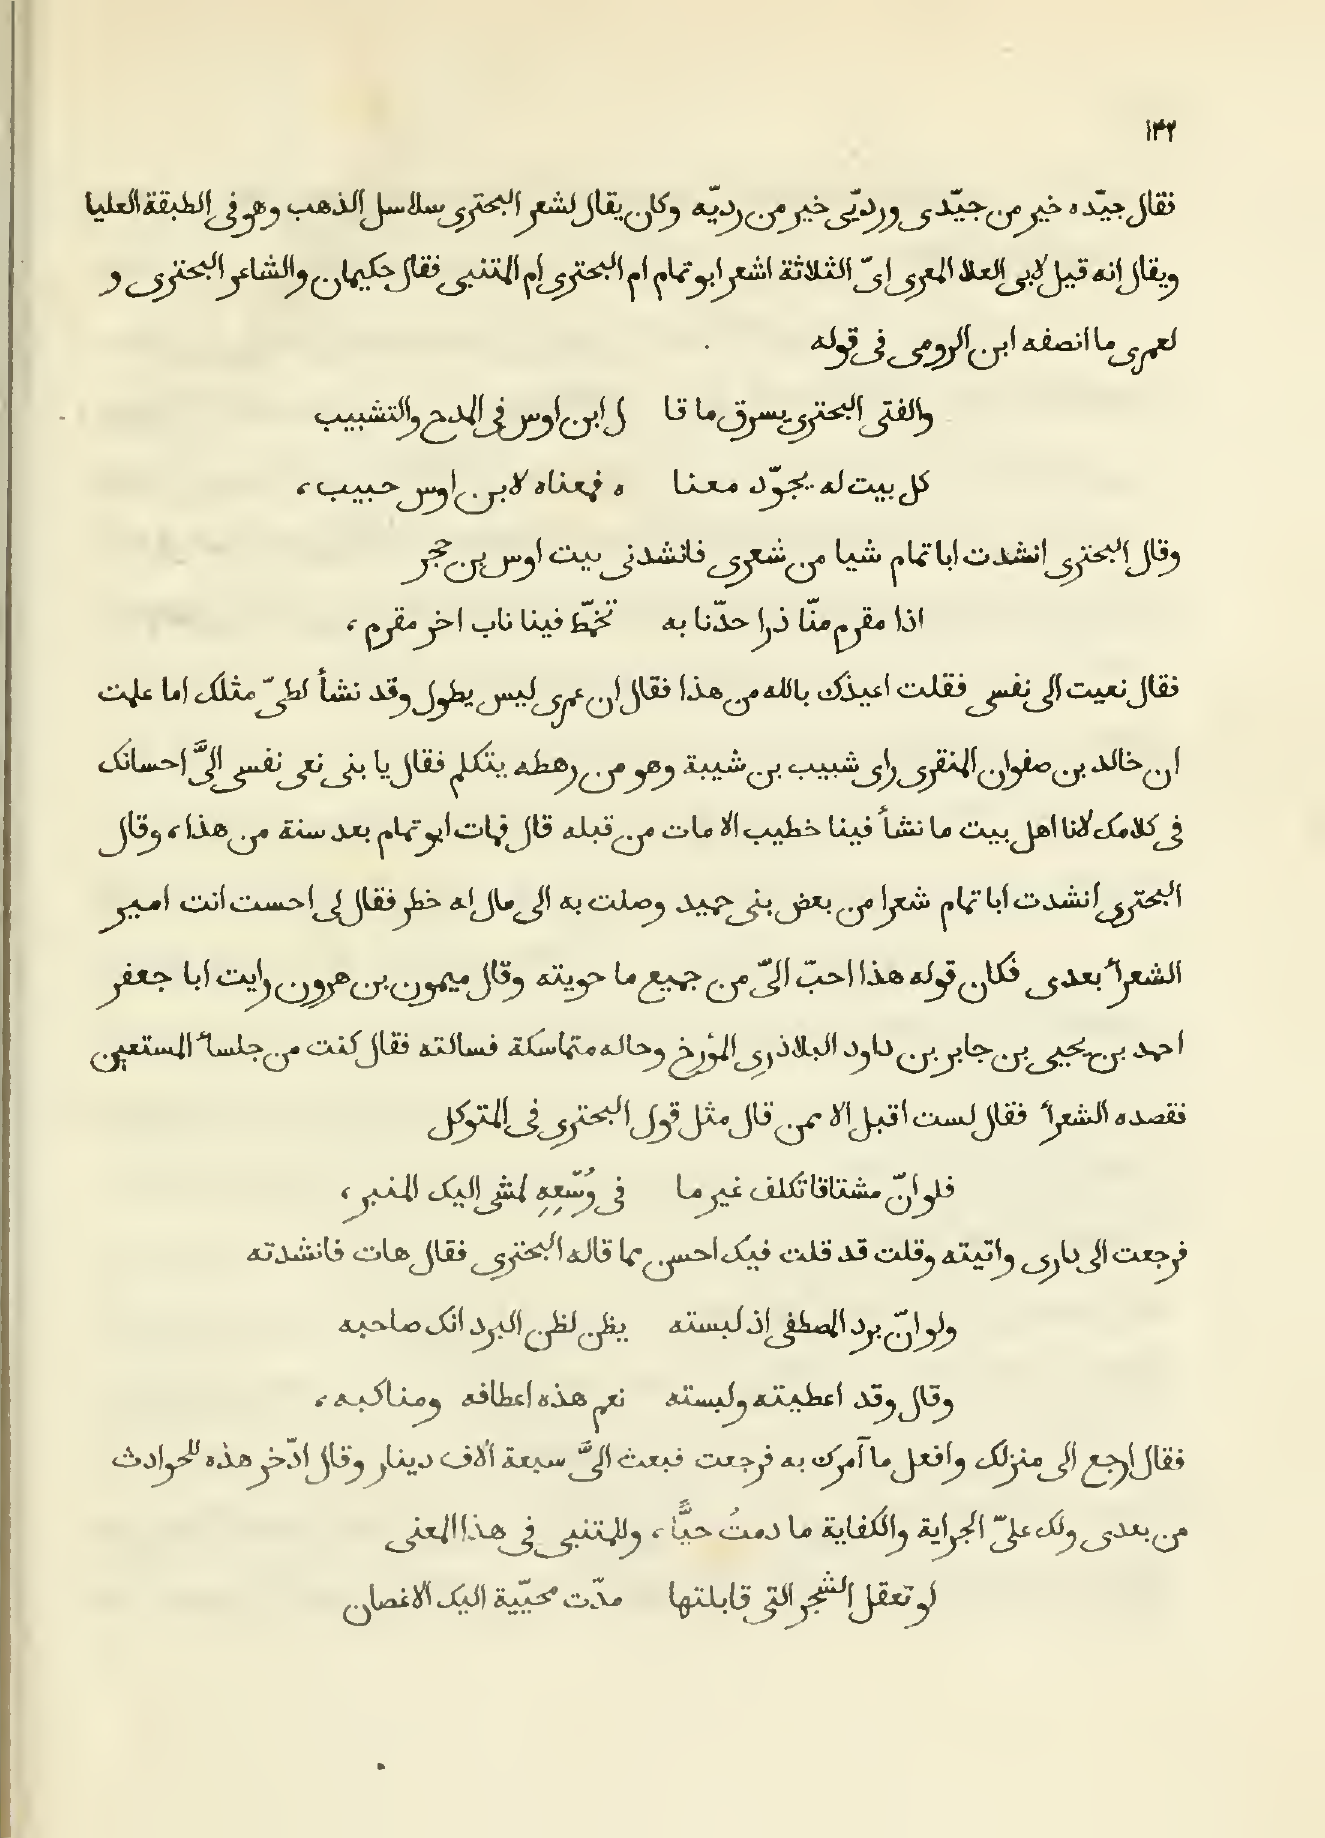 ١٤٢
فقال جيّده خير من جيّدى ورديّى خير من رديّه وكان يقال لشعر البحترى سلاسل الذهب وهو فى الطبقة العليا
ويقال انه قيل لابى العلا المعرى اىّ الثلاثة اشعر ابو تمام ام البحترى ام المتنبى فقال حكيمان والشاعر البحترى و
لعمرى ما انصفه ابن الرومى فى قوله
والفتى البحترى يسرق ما قا ل ابن اوس فى المدح والتشبيب
كل بيت له يجوّد معنا ه فمعناه لابن اوس حبيب،
وقال البحترى انشدت ابا تمام شيا من شعرى فانشدنى بيت اوس بن حجر
اذا مقرم منّا ذرا حدّنا به تخمّط فينا ناب اخر مقرم،
فقال نعيت الى نفسى فقلت اعيذك بالله من هذا فقال ان عمرى ليس يطول وقد نشأ لطىّ مثلك اما علمت
ان خالد بن صفوان المنقرى راى شبيب بن شيبة وهو من رهطه يتكلم فقال يا بنى نعى نفسى الىَّ احسانك
فى كلامك لانا اهل بيت ما نشأ فينا خطيب الا مات من قبله قال فمات ابو تمام بعد سنة من هذا، وقال
البحترى انشدت ابا تمام شعرا من بعض بنى حميد وصلت به الى مال له خطر فقال لى احست انت امير
الشعرأ بعدى فكان قوله هذا احبّ الىّ من جميع ما حويته وقال ميمون بن هرون رايت ابا جعفر
احمد بن يحيى بن جابر بن داود البلاذرى المؤرخ وحاله متماسكة فسالته فقال كنت من جلسأ المستعين
فقصده الشعرأ فقال لست اقبل الا ممن قال مثل قول البحترى فى المتوكل
فلو انّ مشتاقا تكلف غير ما فى وُسْعِهِ لمشى اليك المنبر،
فرجعت الى دارى واتيته وقلت قد قلت فيك احسن مما قاله البحترى فقال هات فانشدته
ولو انّ برد المصطفى اذ لبسته يظن لظن البرد انك صاحبه
وقال وقد اعطيته ولبسته نعم هذه اعطافه ومناكبه،
فقال ارجع الى منزلك وافعل ما آمرك به فرجعت فبعث الىَّ سبعة آلاف دينار وقال ادّخر هذه للحوادث
من بعدى ولك علىّ الجراية والكفاية ما دمتُ حيًّا، وللمتنبى فى هذا المعنى
لو تعقل الشجر التى قابلتها مدّت محيّية اليك الاغصان